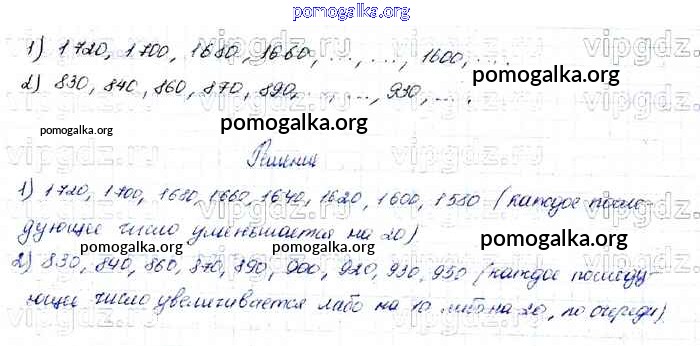 pomogalka.org
1) 1720, 1700, 1680, 1660, ..., ..., 1600, ... .
2) 830, 840, 860, 870, 890, ..., ..., 930, ... .
pomogalka.org
pomogalka.org
pomogalka.org
Решение
1) 1720, 1700, 1680, 1660, 1640, 1620, 1600, 1580 (каждое после-
дующее число уменьшается на 20)
pomogalka.org
pomogalka.org
pomogalka.org
2) 830, 840, 860, 870, 890, 900, 920, 930, 950 (каждое последу-
ющее число увеличивается либо на 10 либо на 20, по очереди).
pomogalka.org
pomogalka.org